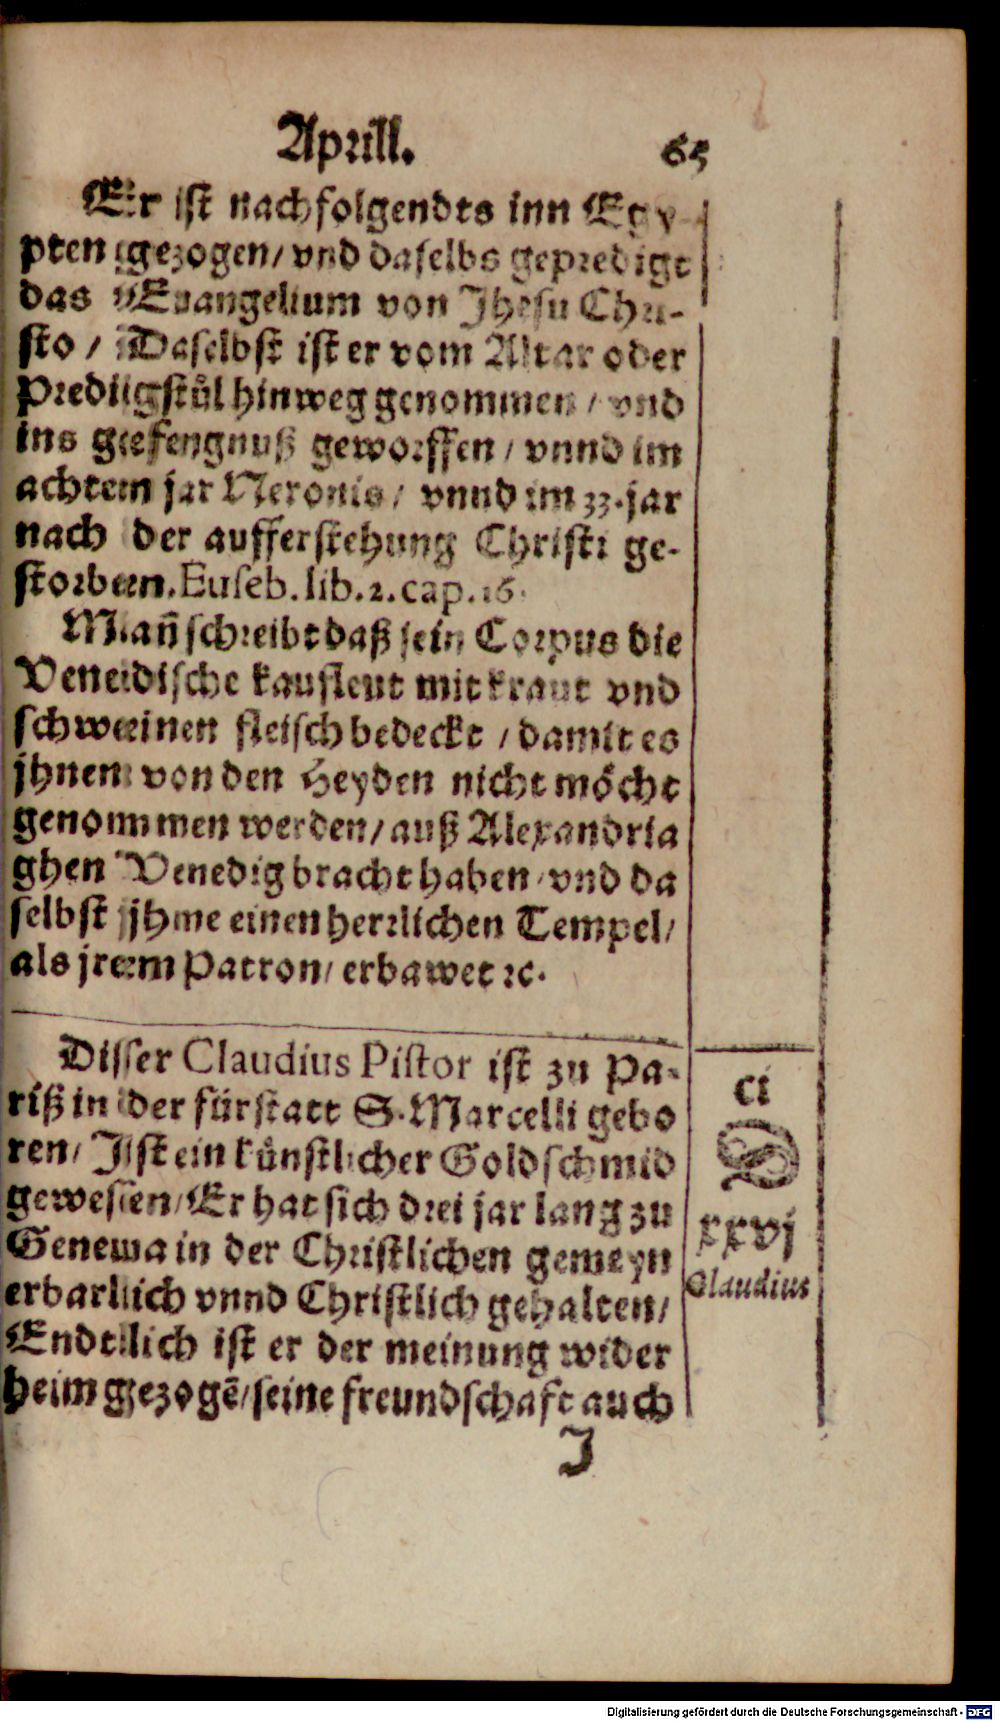 Aprill. 65
Er ist nachfolgendts inn Egy-
pten gezogen/ vnd daselbs geprediget
das Euangelium von Jhesu Chri-
sto / Daselbst ist er vom Altar oder
Predigstůl hinweg genommen / vnd
ins gefengnuß geworffen / vnnd im
achtem jar Neronis / vnnd im 33. jar
nach der aufferstehung Christi ge-
storben. Euseb. lib. 2. cap. 16.
Mañ schreibt daß sein Corpus die
Venedische kaufleut mit kraut vnd
schweinen fleisch bedeckt / damit es
jhnen von den Heyden nicht möcht
genommen werden/ auß Alexandria
ghen Venedig bracht haben / vnd da
selbst jhme einen herrlichen Tempel/
als jrem Patron/ erbawet ꝛc.
Disser Claudius Pistor ist zu Pa-
riß in der fürstatt S. Marcelli gebo
ren/ Jst ein kůnstlicher Goldschmid
gewesen/ Er hat sich drei jar lang zu
Genewa in der Christlichen gemeyn
erbarlich vnnd Christlich gehalten/
Endtlich ist er der meinung wider
heim gezogē/ seine freundschaft auch
J
ci
D
xxvj
Claudius
Digitalisierung gefördert durch die Deutsche Forschungsgemeinschaft - DFG